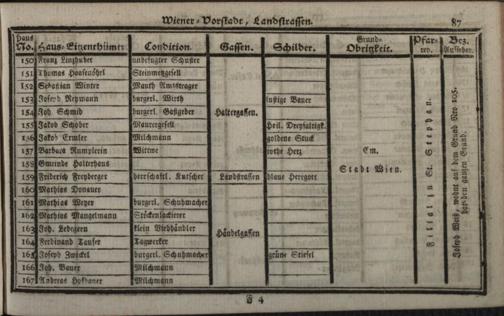 Wiener-Vorstadt, Landstrassen. 87
Haus No. Haus-Eigenthümer Condition. Gassen. Schilder. Grund-Obrigkeit. Pfarren. Bez. Aufseher.
150 Franz Linzhuber unbefugter Schuster
151 Thomas Haasenöhrl Steinmetzgesell
152 Sebastian Winter Mauth Amtstrager
153 Joseph Reymann burgerl. Wirth lustige Bauer
154 Joh. Schmid burgerl. Gastgeber Haltergassen.
155 Jakob Schober Maurergesell Heil. Dreyfaltigk.
156 Jakob Ermler Milchmann goldene Stuck
157 Barbara Rumplerin Wittwe rothe Herz Em.
158 Gmeinde Halterhaus Stadt Wien.
159 Friderich Freyberger herrschaftl. Kutscher Landstrassen blaue Herrgott
160 Mathias Donauer
161 Mathias Weyer burgerl. Schuhmacher
162 Mathias Mangelmann Stöckenlackierer
163 Joh. Ledgern klein Viehhändler
164 Ferdinand Tauser Tagwerker Händelgassen
165 Joseph Zwickel burgerl. Schuhmacher grüne Stiefel
166 Joh. Bauer Milchmann
167 Andreas Hofbauer Milchmann
Filial zu St. Stephan.
Joseph Weiß, wohnt auf dem Grund Nro 105.
hat den ganzen Grund.
F 4